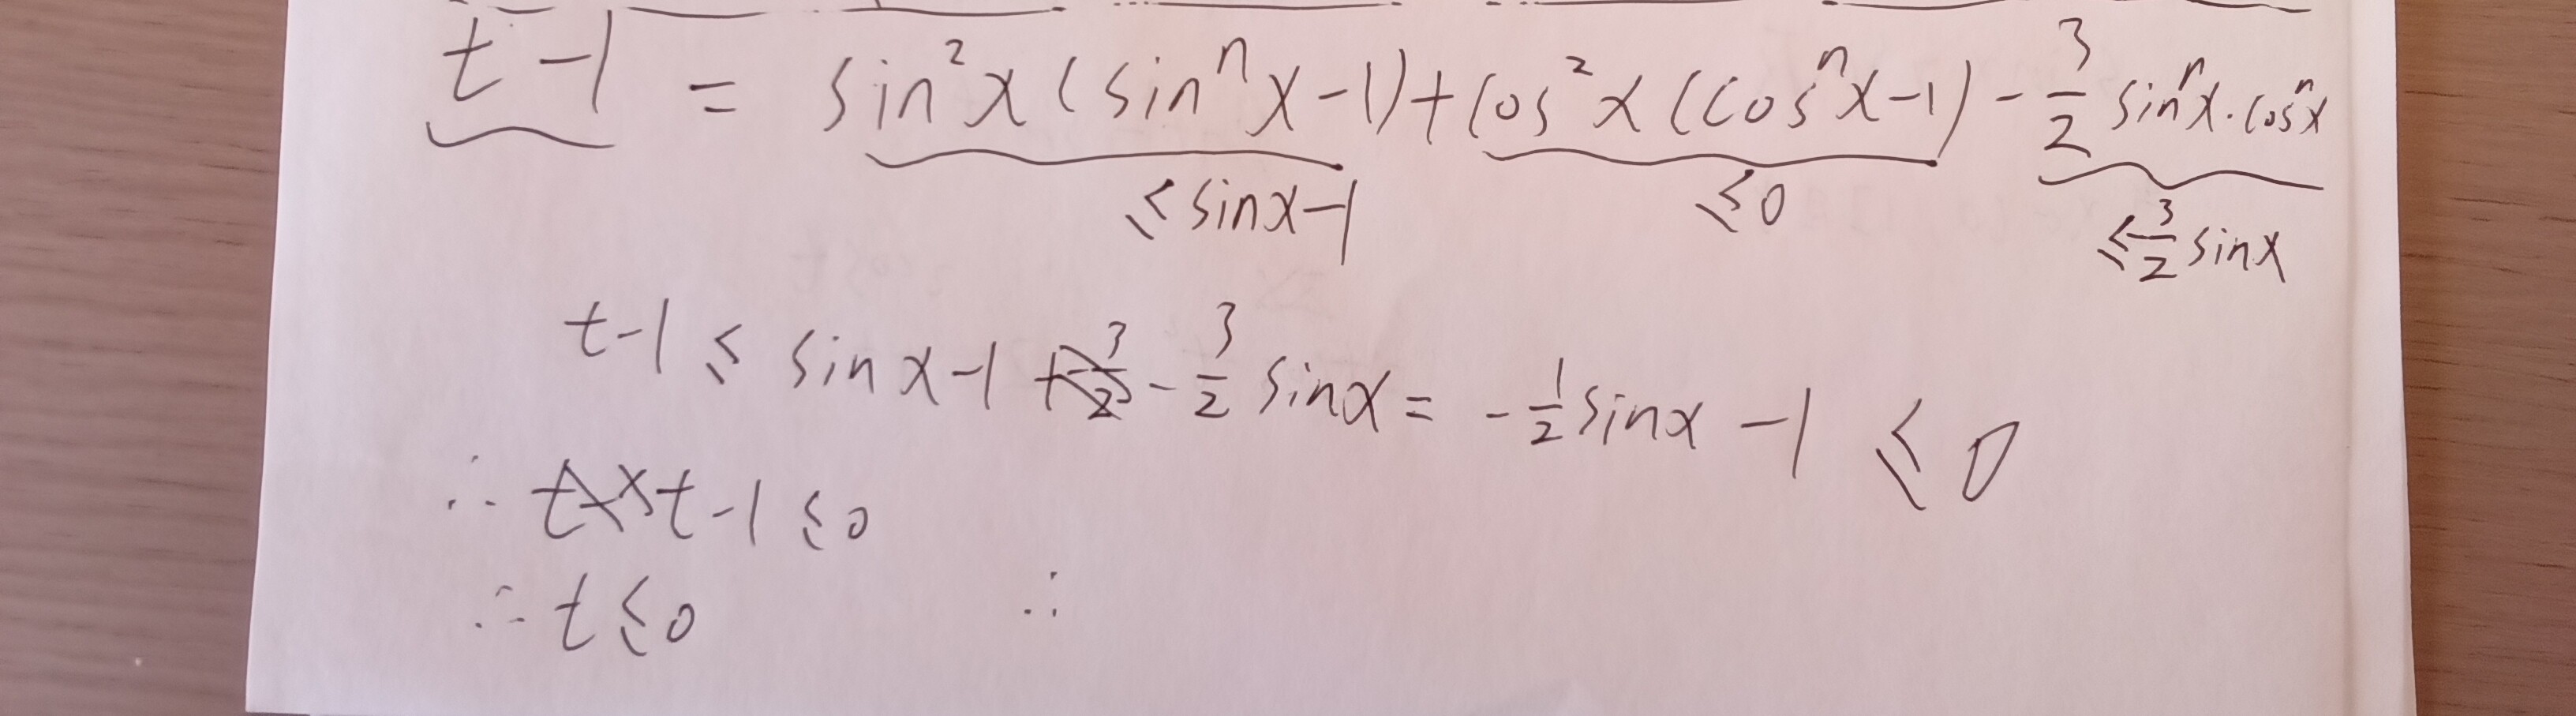 t-1 = sin²x(sinⁿx-1)+cos²x(cosⁿx-1)-3/2 sinⁿx·cosⁿx
≤sinx-1 ≤0 ≤3/2 sinx
t-1 ≤ sinx-1 + - 3/2 sinx = -1/2 sinx -1 ≤ 0
∴ t-1≤0
∴ t≤0 ∴